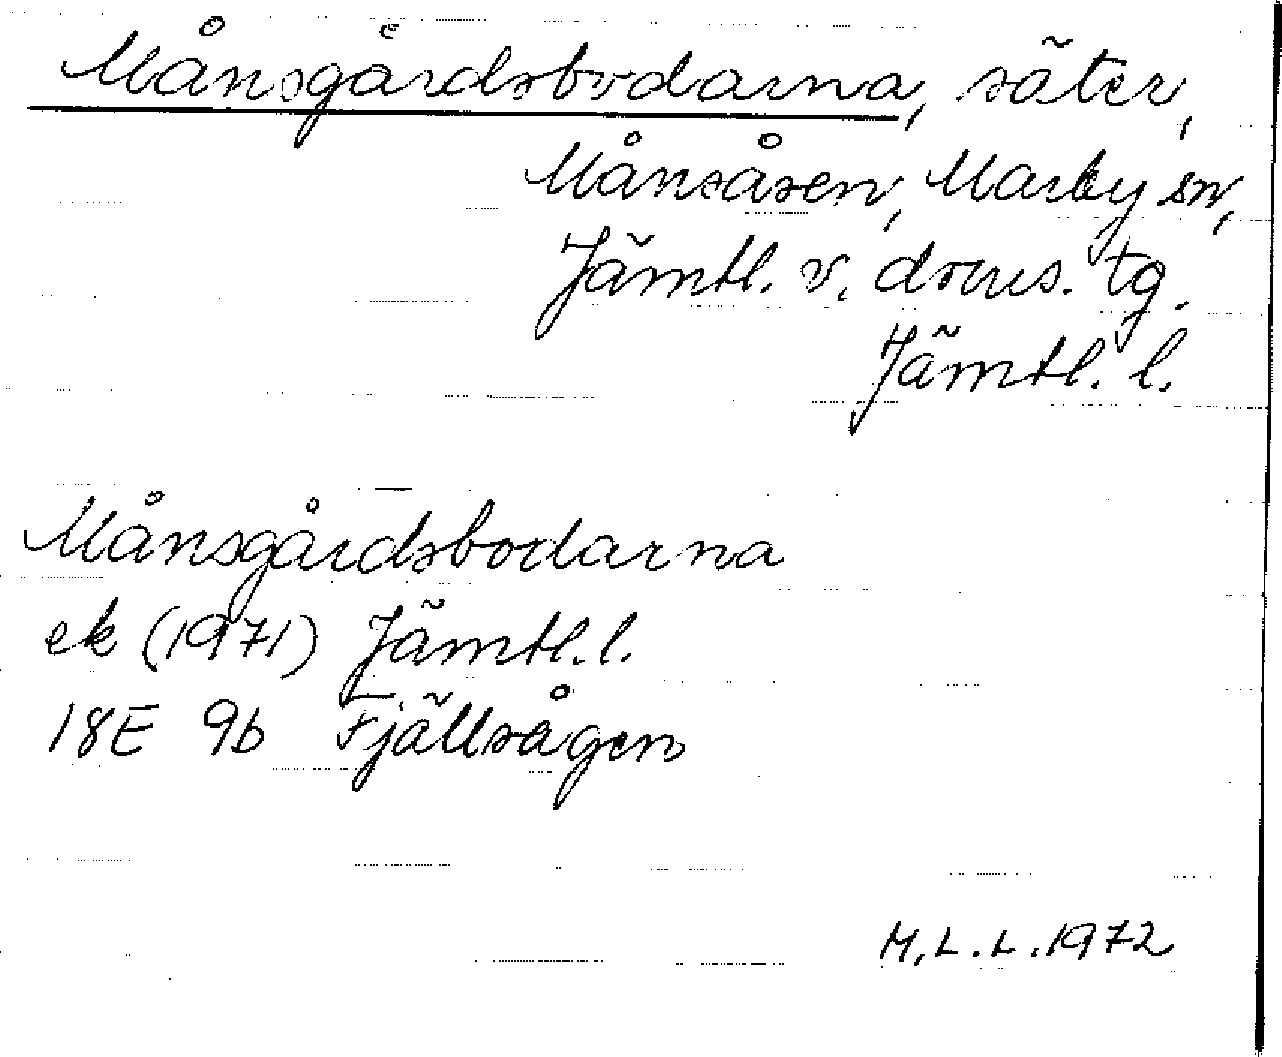 Månsgårdsbodarna, säter,
Månsåsen, Marby sn,
Jämtl. v. doms. tg.
Jämtl. l.
Månsgårdsbodarna
ek (1971) Jämtl. l.
18E 9b Fjällsågen
M.L.L. 1972